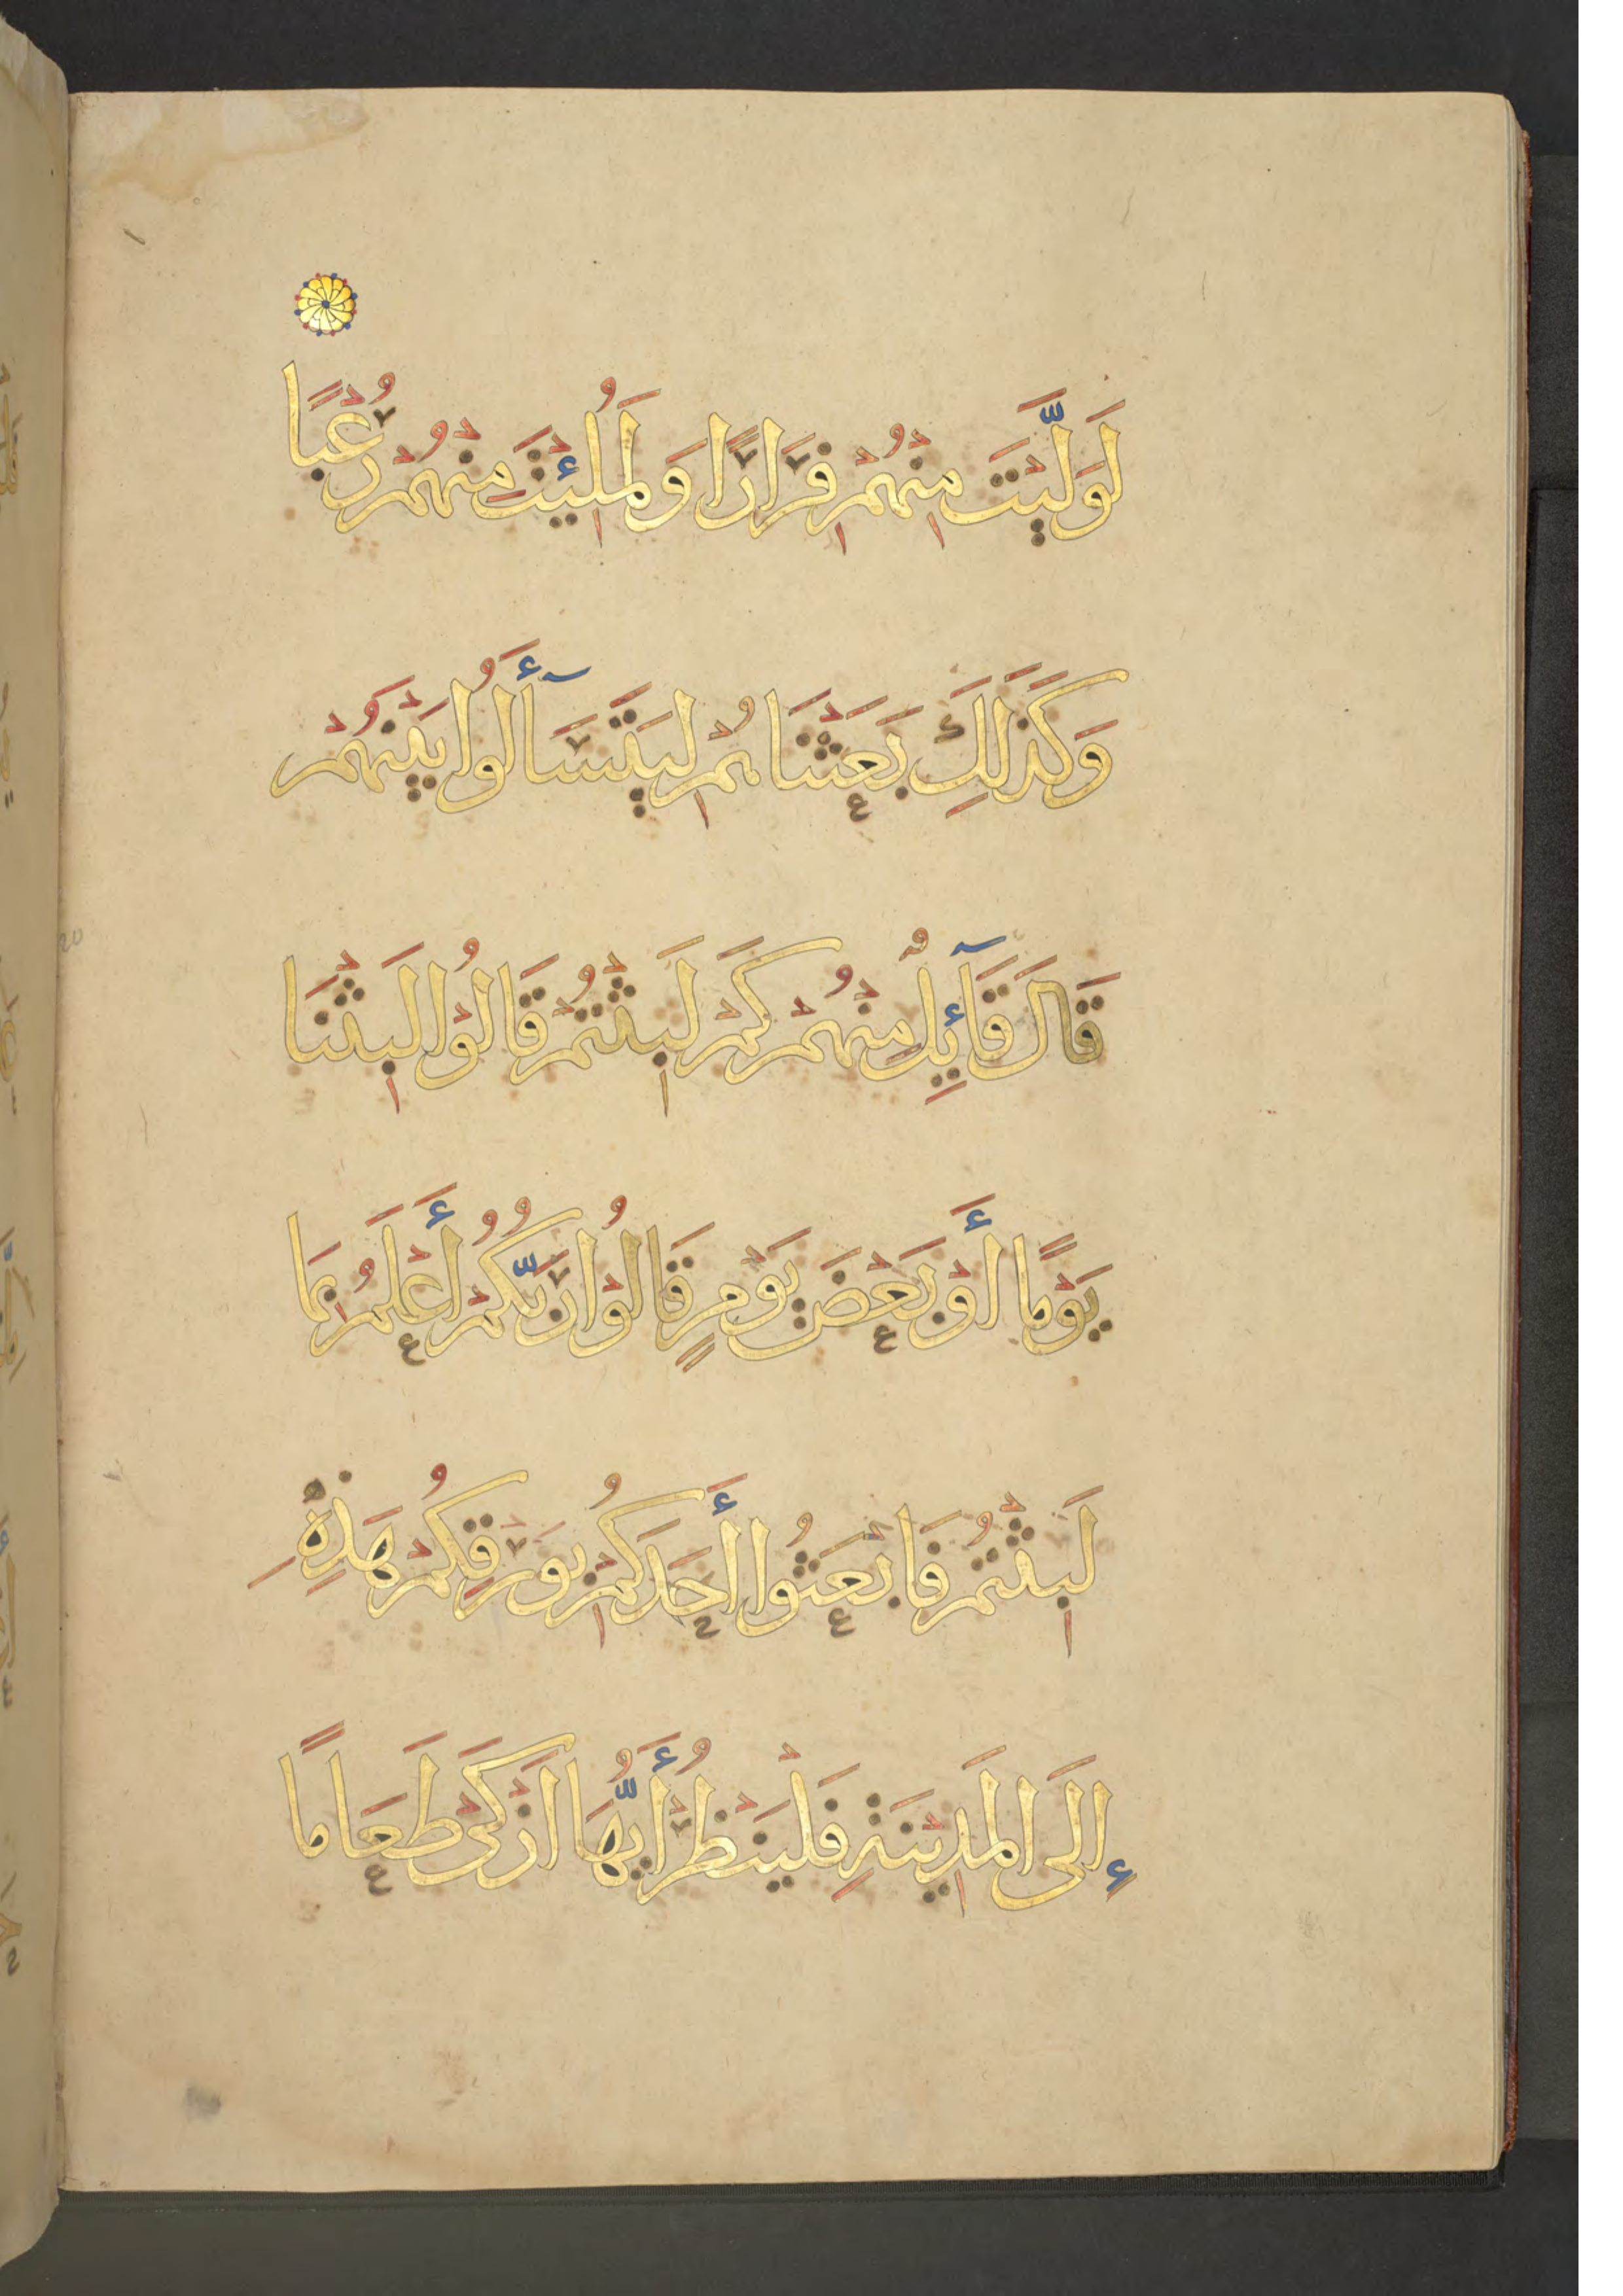 لَوَلَّيْتَ مِنْهُمْ فِرَارًا وَلَمُلِئْتَ مِنْهُمْ رُعْبًا
وَكَذَلِكَ بَعَثْنَاهُمْ لِيَتَسَآأَلُوا بَيْنَهُمْ
قَالَ قَآئِلٌ مِنْهُمْ كَمْ لَبِثْتُمْ قَالُوْا لَبِثْنَا
يَوْمًا أَوْ بَعْضَ يَوْمٍ قَالُوْا رَبُّكُمْ أَعْلَمُ بِمَا
لَبِثْتُمْ فَابْعَثُوا أَحَدَكُمْ بِوَرِقِكُمْ هَذِهِ
إِلَى الْمَدِيْنَةِ فَلْيَنْظُرْ أَيُّهَا أَزْكَىْ طَعَامًا